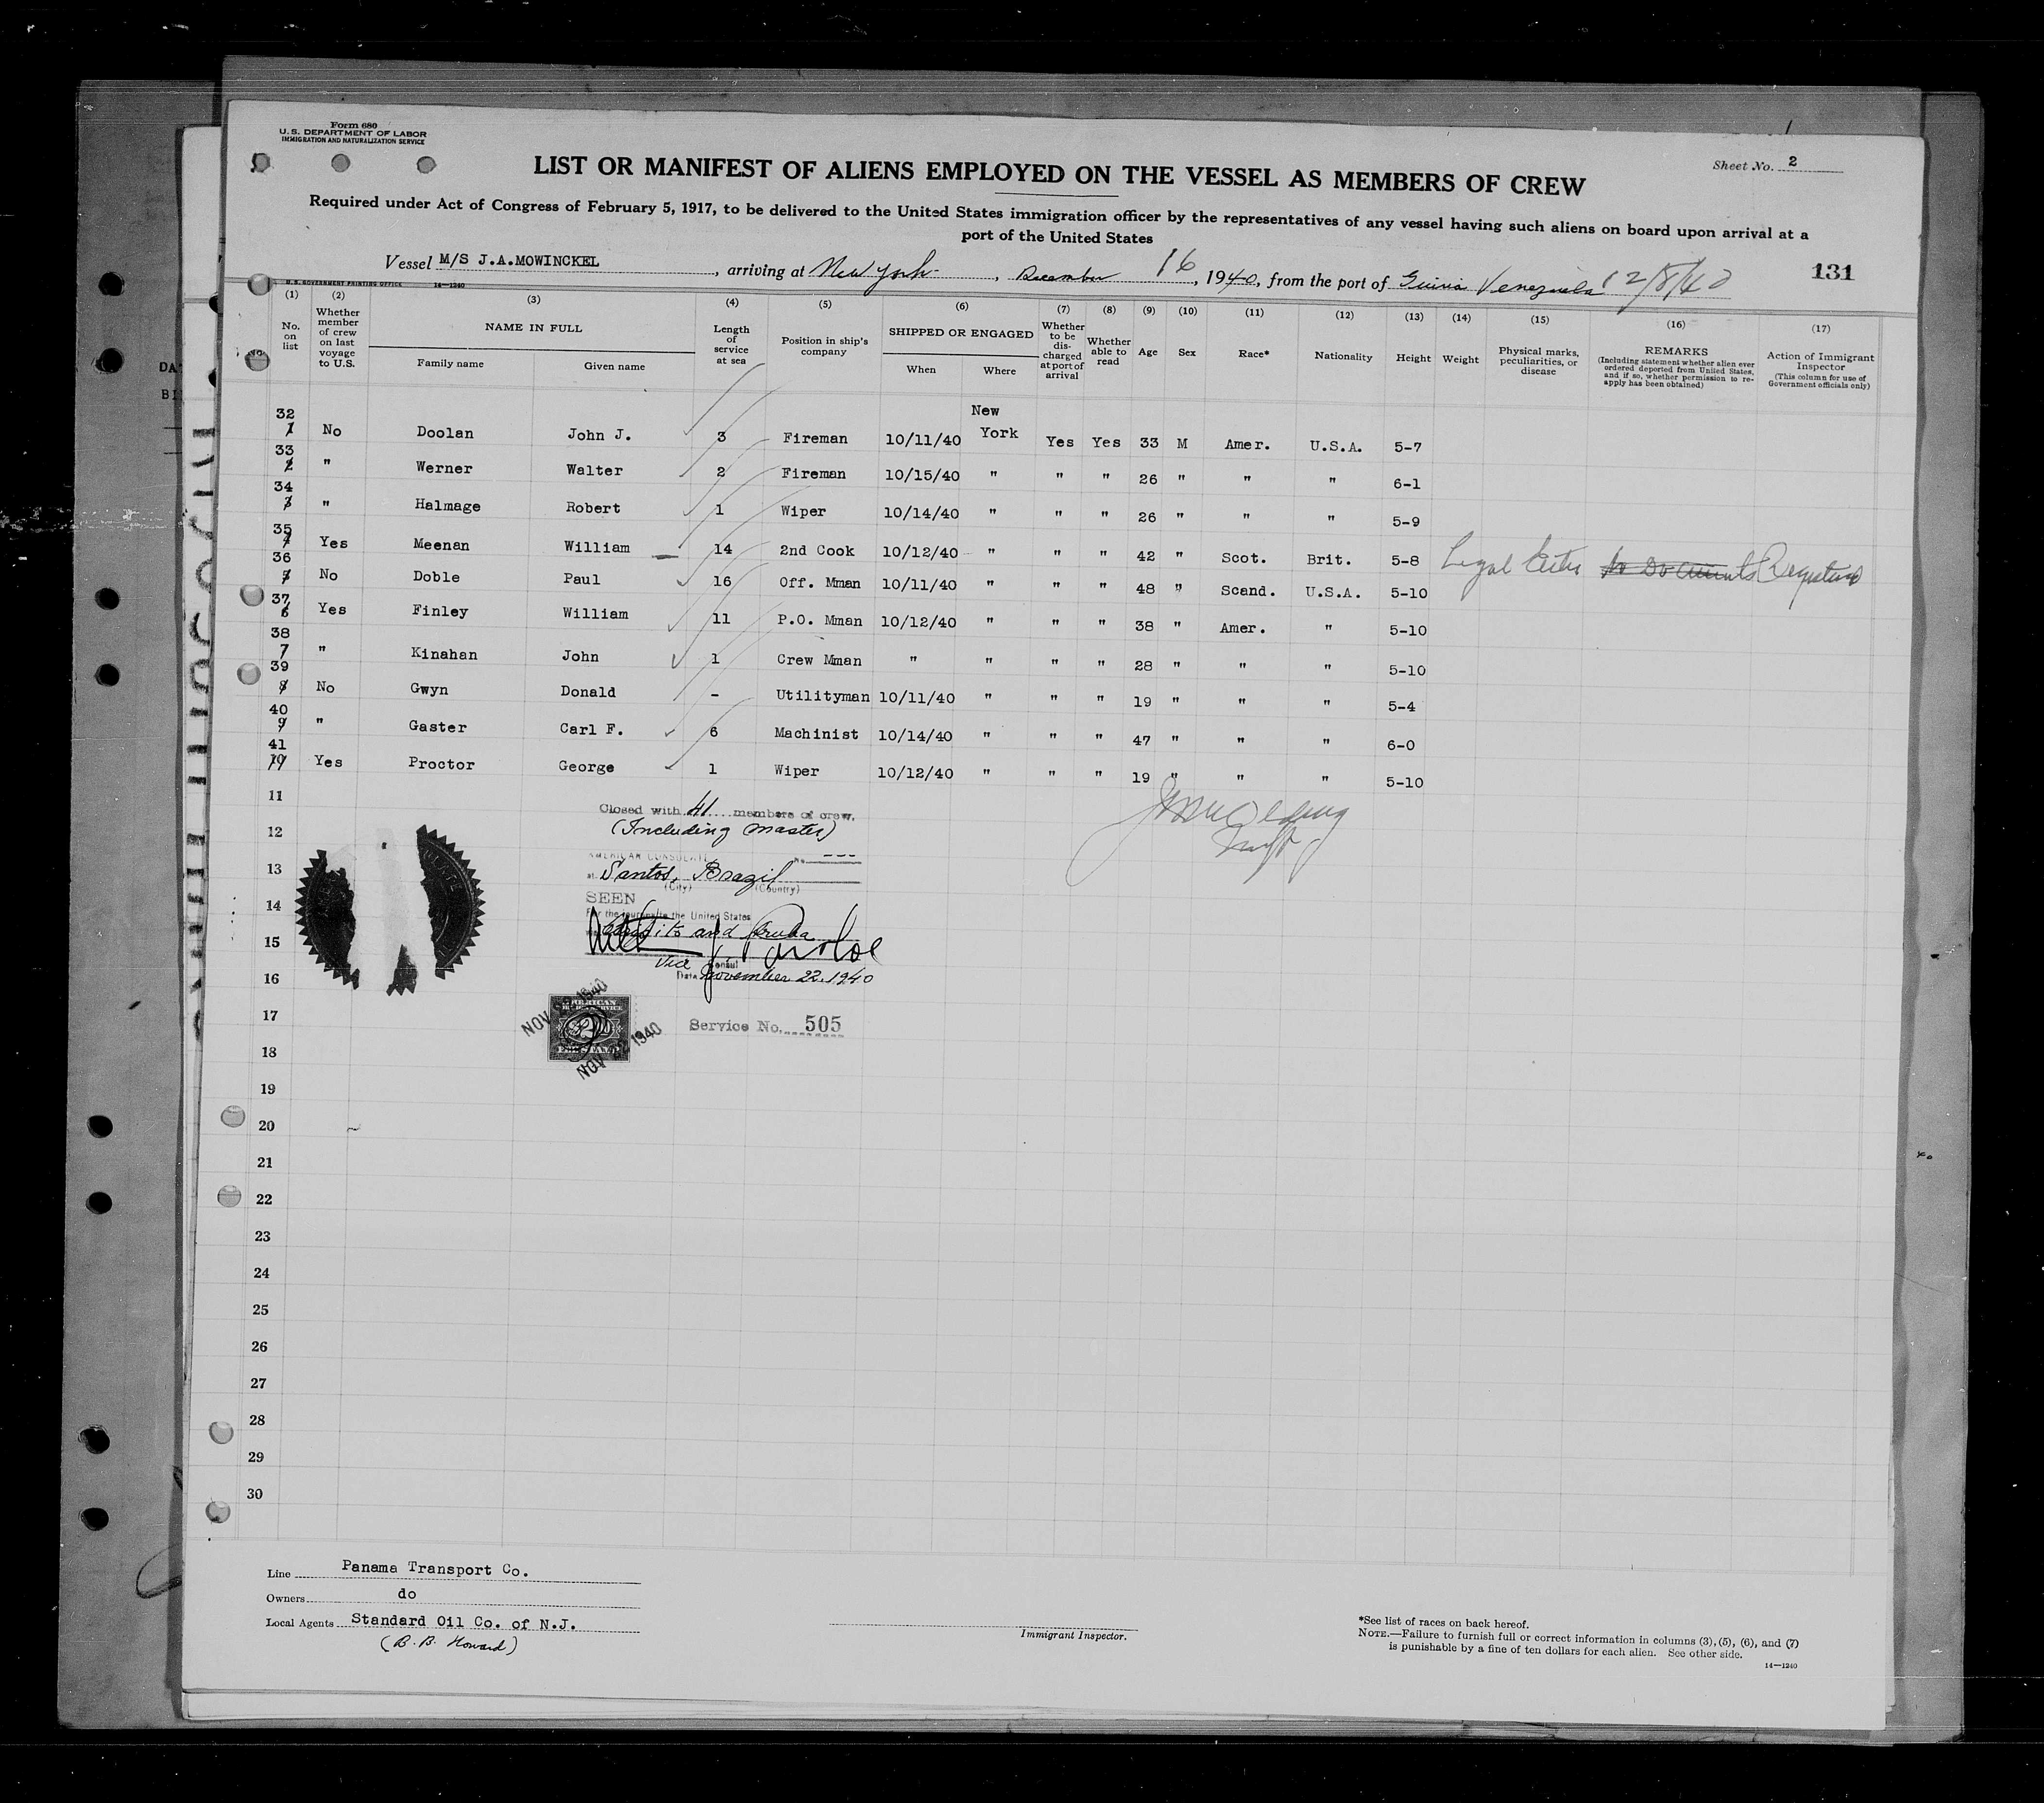 Form 680
U.S. DEPARTMENT OF LABOR
IMMIGRATION AND NATURALIZATION SERVICE
Sheet No. 2
LIST OR MANIFEST OF ALIENS EMPLOYED ON THE VESSEL AS MEMBERS OF CREW
Required under Act of Congress of February 5, 1917, to be delivered to the United States immigration officer by the representatives of any vessel having such aliens on board upon arrival at a
port of the United States
Vessel M/S J.A.MOWINCKEL, arriving at New York, December 16, 1940, from the port of Guiria Venezuela 12/8/40
131
U.S. GOVERNMENT PRINTING OFFICE 14—1240
(1) No. on list
(2) Whether member of crew on last voyage to U.S.
(3) NAME IN FULL
Family name Given name
(4) Length of service at sea
(5) Position in ship's company
(6) SHIPPED OR ENGAGED
When Where
(7) Whether to be discharged at port of arrival
(8) Whether able to read
(9) Age
(10) Sex
(11) Race*
(12) Nationality
(13) Height
(14) Weight
(15) Physical marks, peculiarities, or disease
(16) REMARKS
(Including statement whether alien ever ordered deported from United States, and if so, whether permission to re-apply has been obtained)
(17) Action of Immigrant Inspector
(This column for use of Government officials only)
32 1 No Doolan John J. 3 Fireman 10/11/40 New York Yes Yes 33 M Amer. U.S.A. 5-7
33 2 " Werner Walter 2 Fireman 10/15/40 " " " 26 " " " 6-1
34 3 " Halmage Robert 1 Wiper 10/14/40 " " " 26 " " " 5-9
35 4 Yes Meenan William 14 2nd Cook 10/12/40 " " " 42 " Scot. Brit. 5-8 Legal No Documents
36 5 No Doble Paul 16 Off. Mman 10/11/40 " " " 48 " Scand. U.S.A. 5-10
37 6 Yes Finley William 11 P.O. Mman 10/12/40 " " " 38 " Amer. " 5-10
38 7 " Kinahan John 1 Crew Mman " " " " 28 " " " 5-10
39 8 No Gwyn Donald - Utilityman 10/11/40 " " " 19 " " " 5-4
40 9 " Gaster Carl F. 6 Machinist 10/14/40 " " " 47 " " " 6-0
41 10 Yes Proctor George 1 Wiper 10/12/40 " " " 19 " " " 5-10
11
12
13
14
15
16
17
18
19
20
21
22
23
24
25
26
27
28
29
30
Closed with 41 members of crew.
(Including Master)
AMERICAN CONSULATE No. ---
at Santos, Brazil
(City) (Country)
SEEN
For the journey to the United States
and Aruba
Vice Consul
Date November 22, 1940
NOV 1940
AMERICAN
NOV 1940
Service No. 505
Line Panama Transport Co.
Owners do
Local Agents Standard Oil Co. of N.J.
(B. B. Howard)
Immigrant Inspector.
*See list of races on back hereof.
NOTE.—Failure to furnish full or correct information in columns (3), (5), (6), and (7)
is punishable by a fine of ten dollars for each alien. See other side.
14—1240